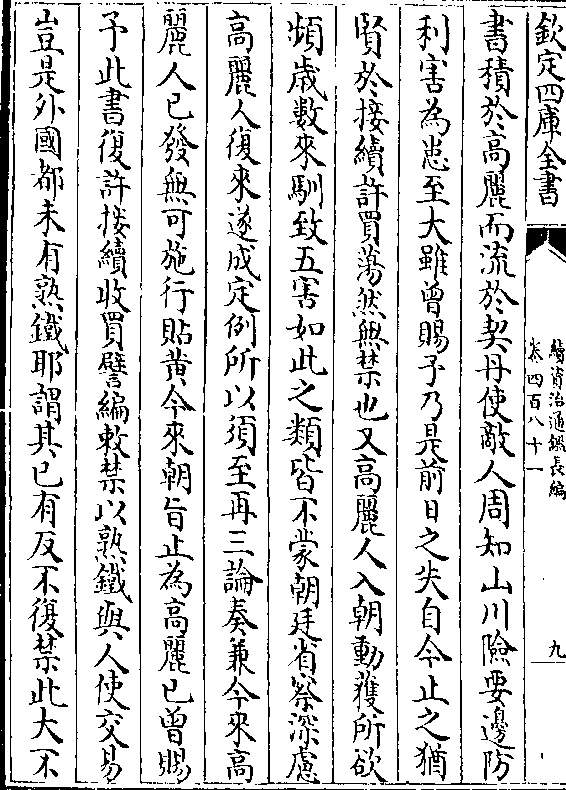 欽定四庫全書
續資治通鑑長編
卷四百八十一
九
書積於高麗而流於契丹使敵人周知山川險要邊防
利害為患至大雖曾賜予乃是前日之失自今止之猶
賢於接續許買蕩然無禁也又高麗人入朝動獲所欲
頻歲數來馴致五害如此之類皆不蒙朝廷省察深慮
高麗人復來遂成定例所以須至再三論奏兼今來高
麗人已發無可施行貼黄今來朝旨止為高麗已曾賜
予此書復許接續收買譬編敕禁以熟鐵與人使交易
豈是外國都未有熟鐵耶謂其已有反不復禁此大不